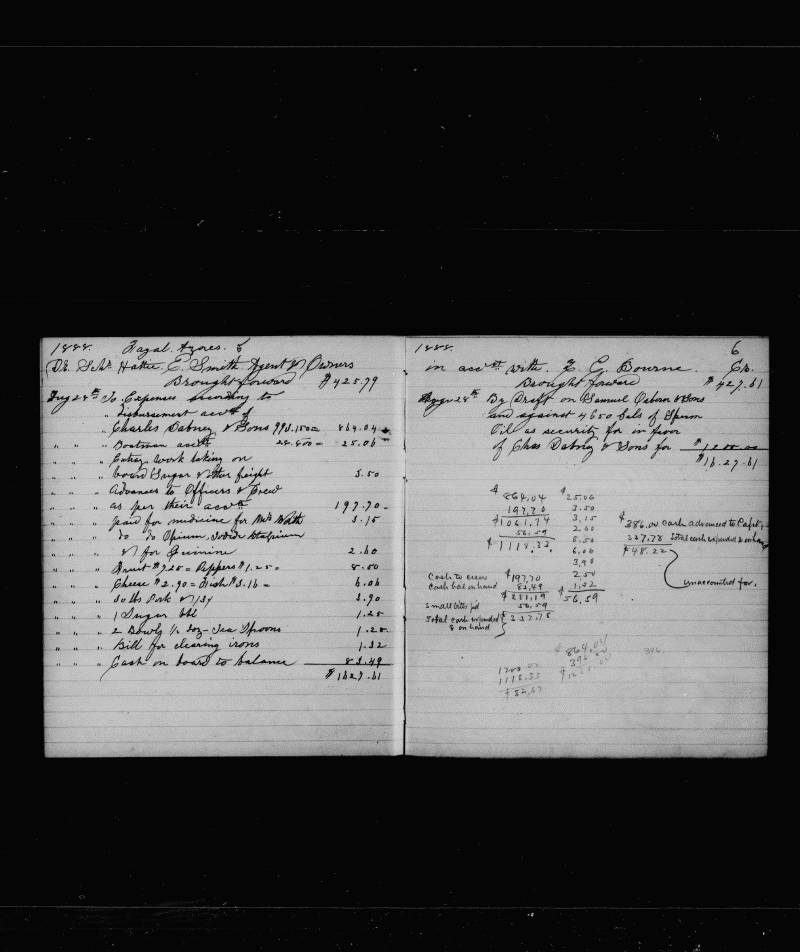 1888. Fayal. Azores.
Dr. Schr Hattie E. Smith Agent & Owners
Brought forward $425.79
Aug 28th To Expenses according to
Disbursement acctt of
Charles Dabney & Sons 993.150= 864.04
" " " Boatman acctt 28.800= 25.06
" " " Extra work taking on
board Sugar & other freight 3.50
" " " Advances to Officers & Crew
as per their acctt 197.70
" " " paid for medicine for 3.15
" " " do do Opium,
& for Quinine 2.60
" " " Fruit $7.25= Peppers $1.25= 8.50
" " " Cheese $2.90= Fish $3.16= 6.06
" " " 30 lbs Pork 3.90
" " " 1 Sugar 1.25
" " " 2 Bowls ½ doz Tea Spoons 1.25
" " " Bill for clearing irons 1.32
" " " Cash on board to balance 83.49
$1627.61
1888. 6
in acctt with. F. E. Bourne. Cr.
Brought forward $427.61
Aug 28th By Draft on Samuel Osborn & Sons
and against 4650 Gals of Sperm
Oil as security for in favor
of Chas Dabney & Sons for $1200.00
$1627.61
$864.04
197.70
$1061.74
56.59
$1118.33
$25.06
3.50
3.15
2.60
8.50
6.06
3.90
2.50
1.32
$56.59
$386.00 cash advanced to Capt
337.78 Total cash expended & on hand
$48.22
unaccounted for.
Cash to crew $197.70
Cash bal on hand 83.49
$281.19
Small bills pd 56.59
Total cash expended $337.78
& on hand
$864.04
396.00
396.
1200.00
1118.33